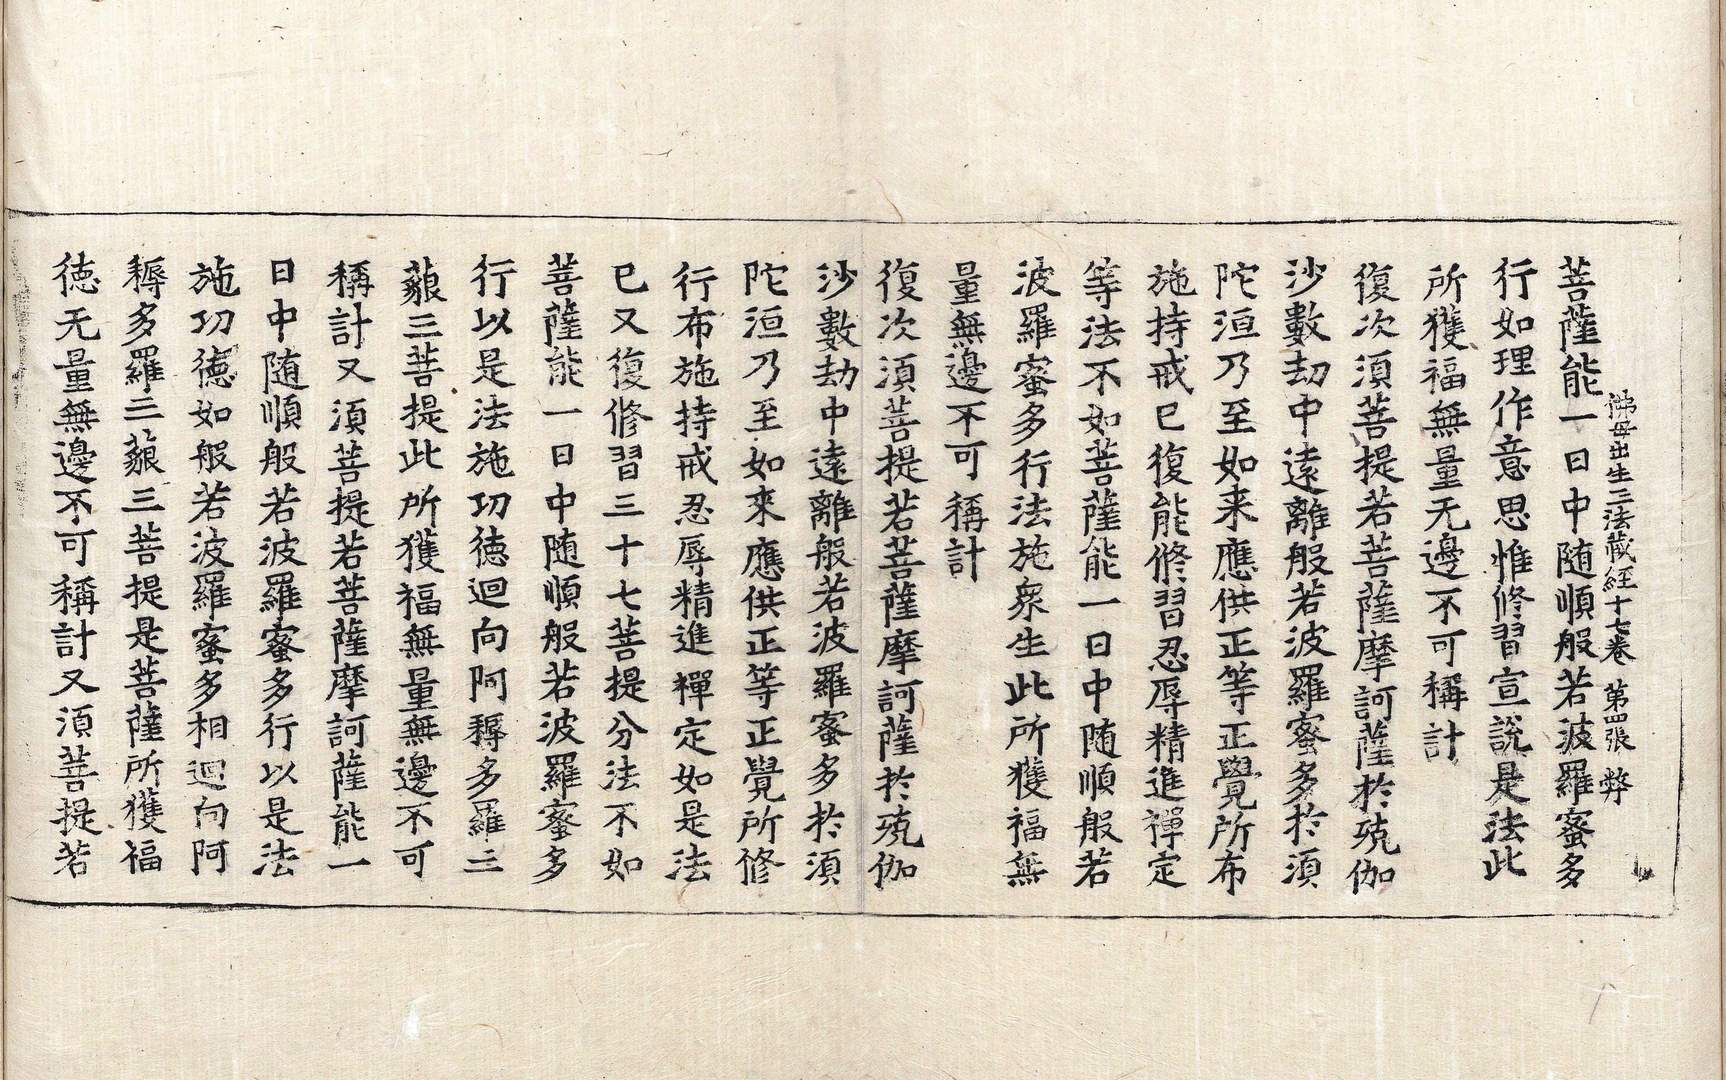 佛母出生三法藏經十七卷 第四張 弊
菩薩能一日中随順般若波羅蜜多
行如理作意思惟修習宣說是法此
所獲福無量无邊不可稱計
復次須菩提若菩薩摩訶薩於殑伽
沙數劫中遠離般若波羅蜜多於須
陀洹乃至如来應供正等正覺所布
施持戒已復能修習忍辱精進禪定
等法不如菩薩能一日中随順般若
波羅蜜多行法施衆生此所獲福無
量無邊不可稱計
復次須菩提若菩薩摩訶薩於殑伽
沙數劫中遠離般若波羅蜜多於須
陀洹乃至如來應供正等正覺所修
行布施持戒忍辱精進禪定如是法
已又復修習三十七菩提分法不如
菩薩能一日中随順般若波羅蜜多
行以是法施功德迴向阿耨多羅三
藐三菩提此所獲福無量無邊不可
稱計又須菩提若菩薩摩訶薩能一
日中随順般若波羅蜜多行以是法
施功德如般若波羅蜜多相迴向阿
耨多羅三藐三菩提是菩薩所獲福
徳无量無邊不可稱計又須菩提若